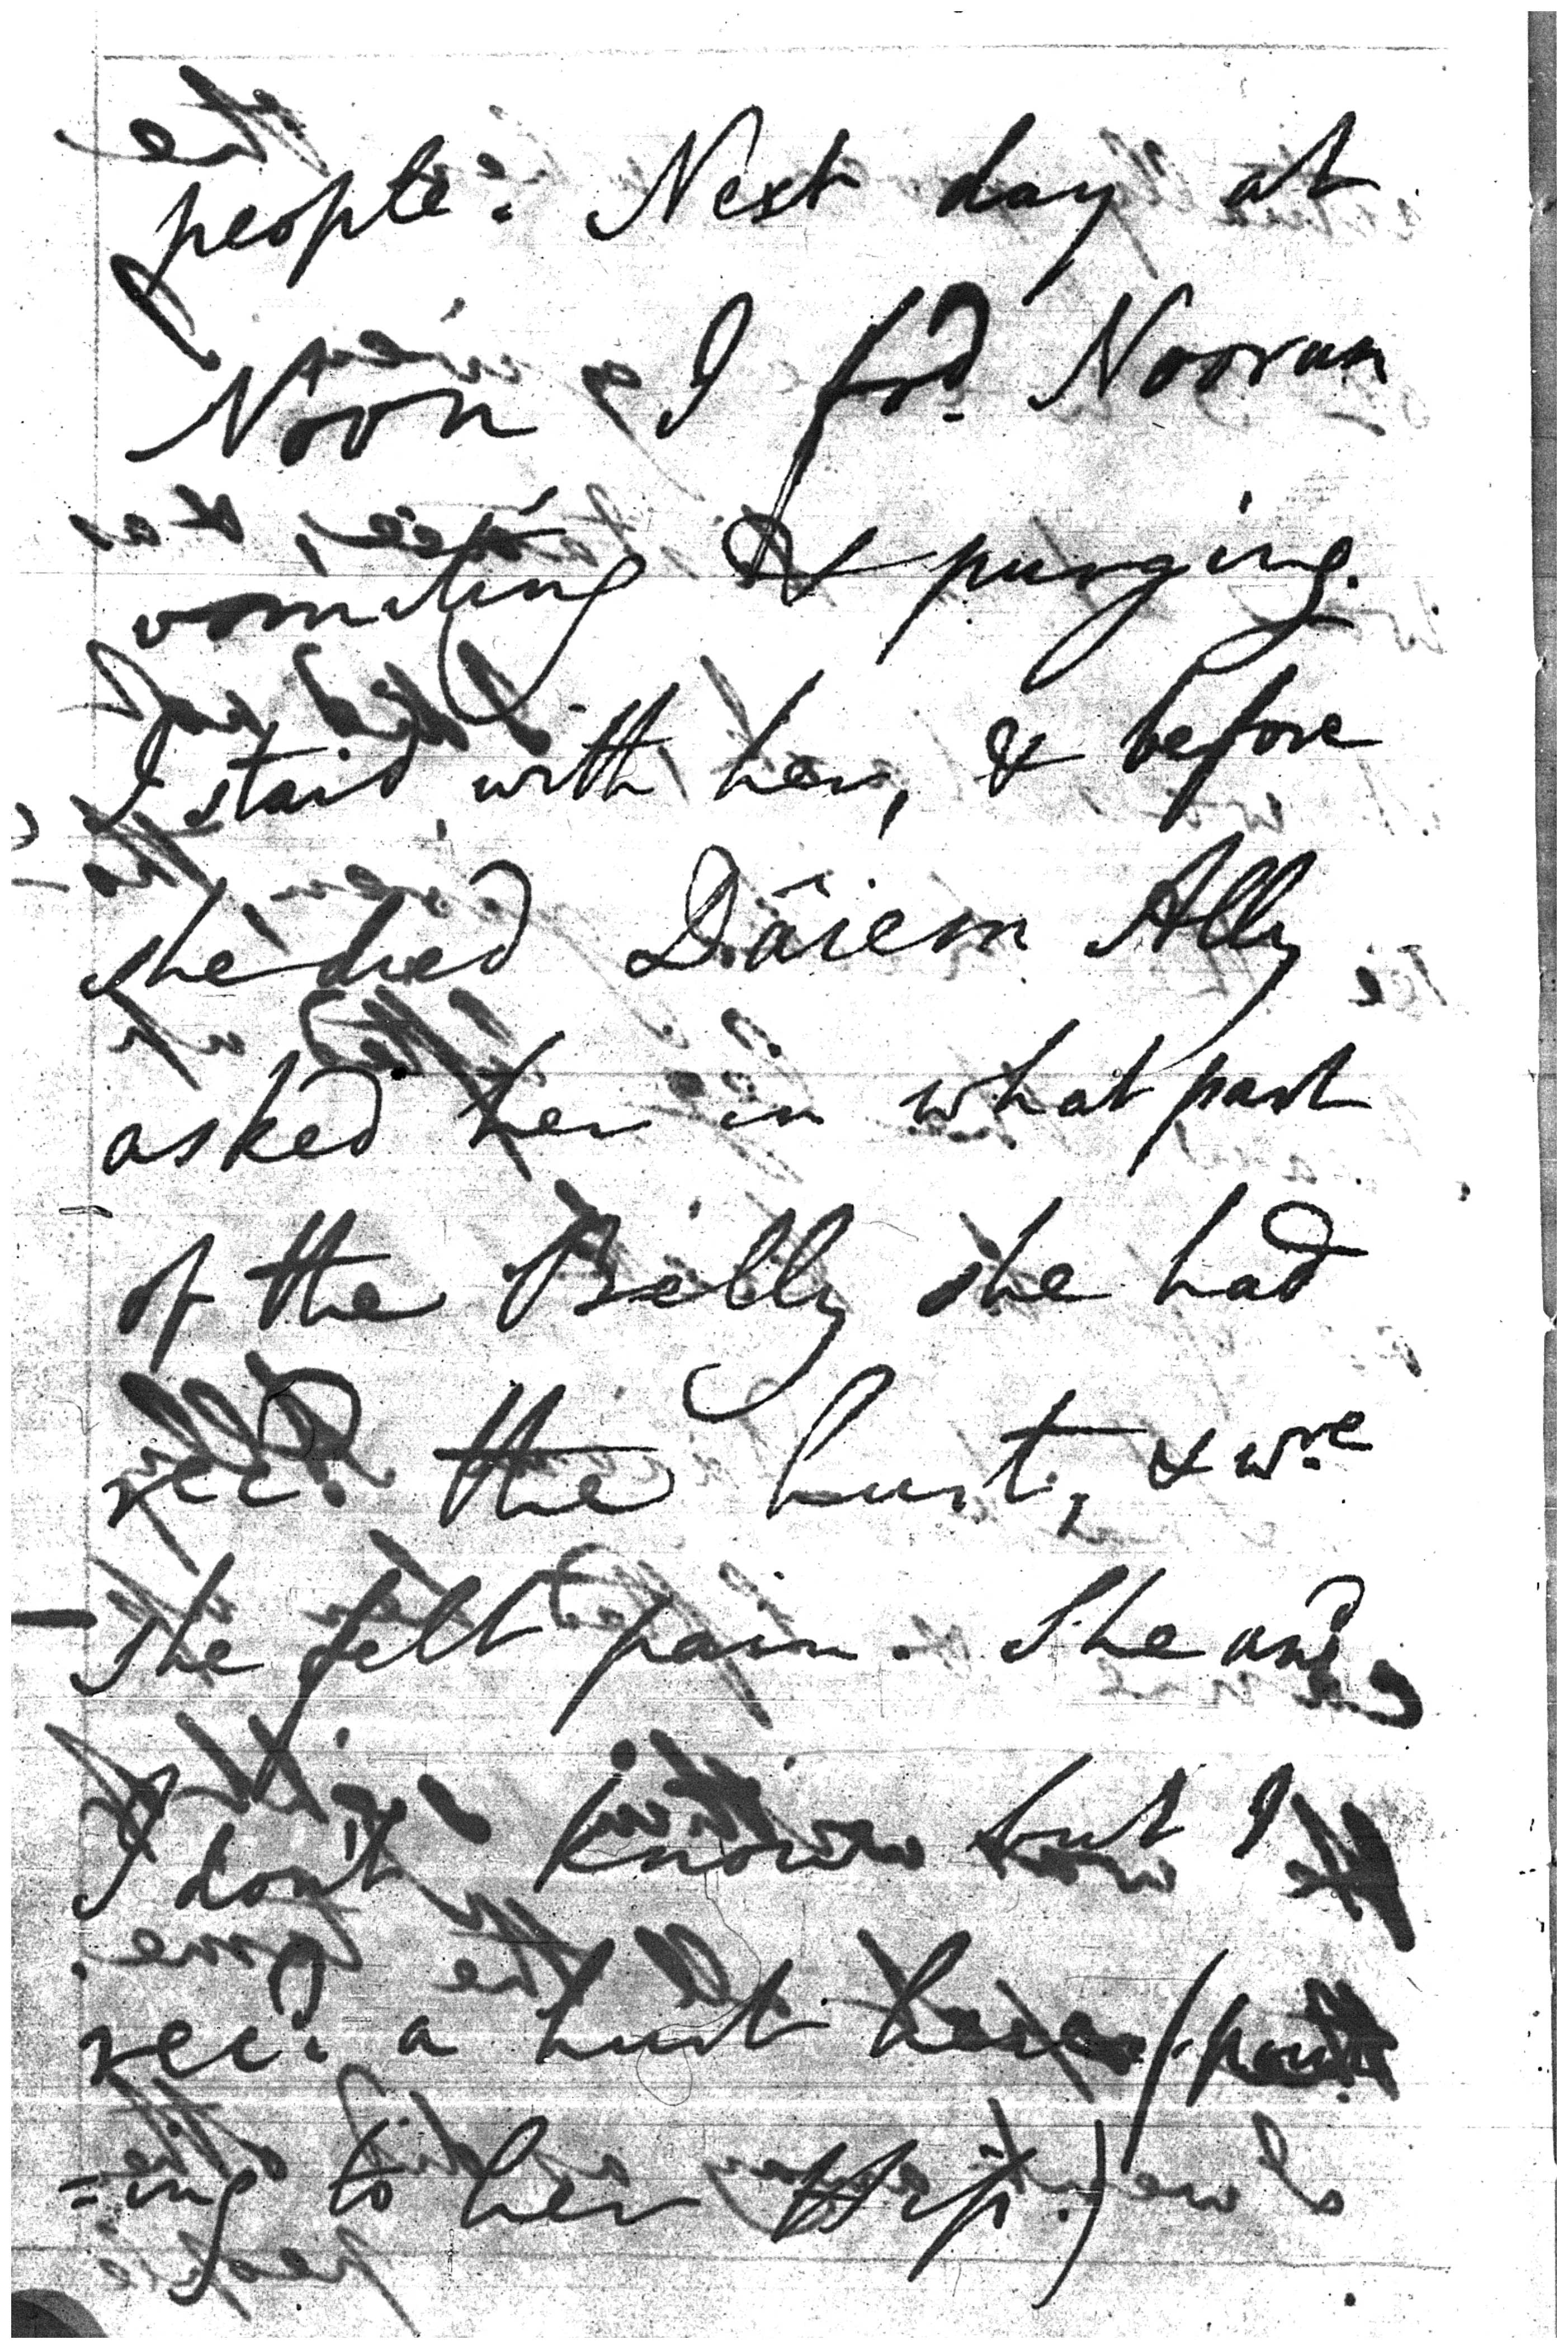 people. Next day at
Noon I fod. Noorun
vomiting & purging.
I staid with her, & before
she died Däiem Ally
asked her in what part
of the Belly she had
recd. the hurt, & wre
she felt pain. She ansd
I don't know but I
recd. a hurt here (point
=ing to her Hip.)